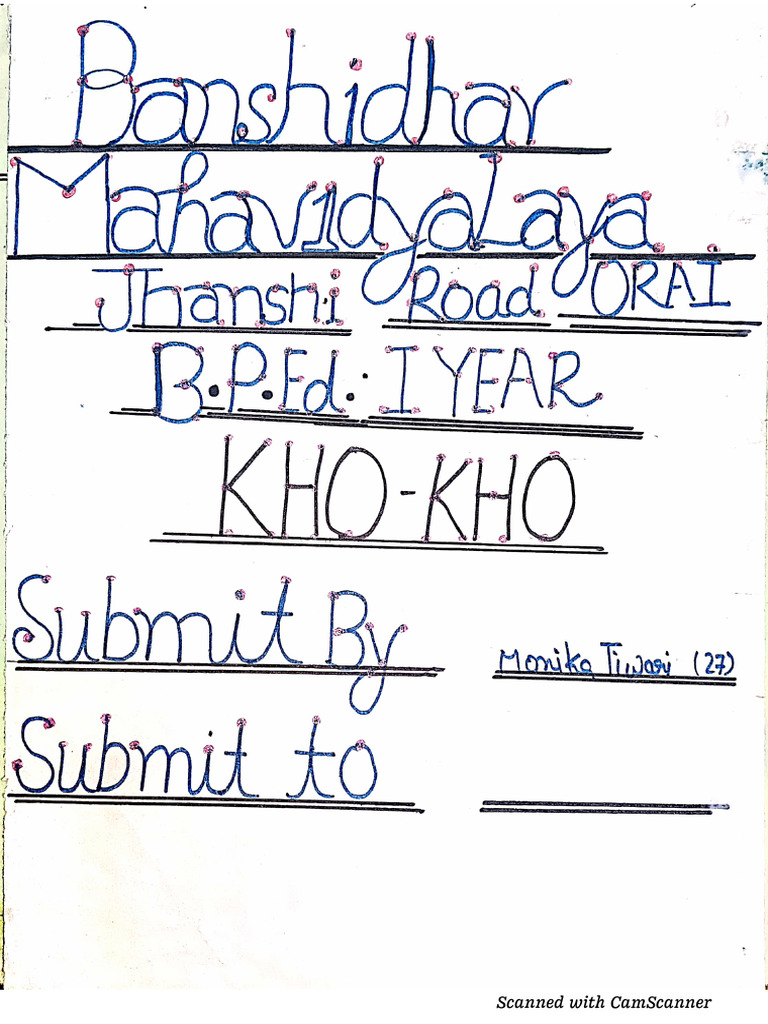 Banshidhar
Mahavidyalaya
Jhanshi Road ORAI
B.P.Ed.: I YEAR
KHO-KHO
Submit By Monika Tiwari (27)
Submit to
Scanned with CamScanner